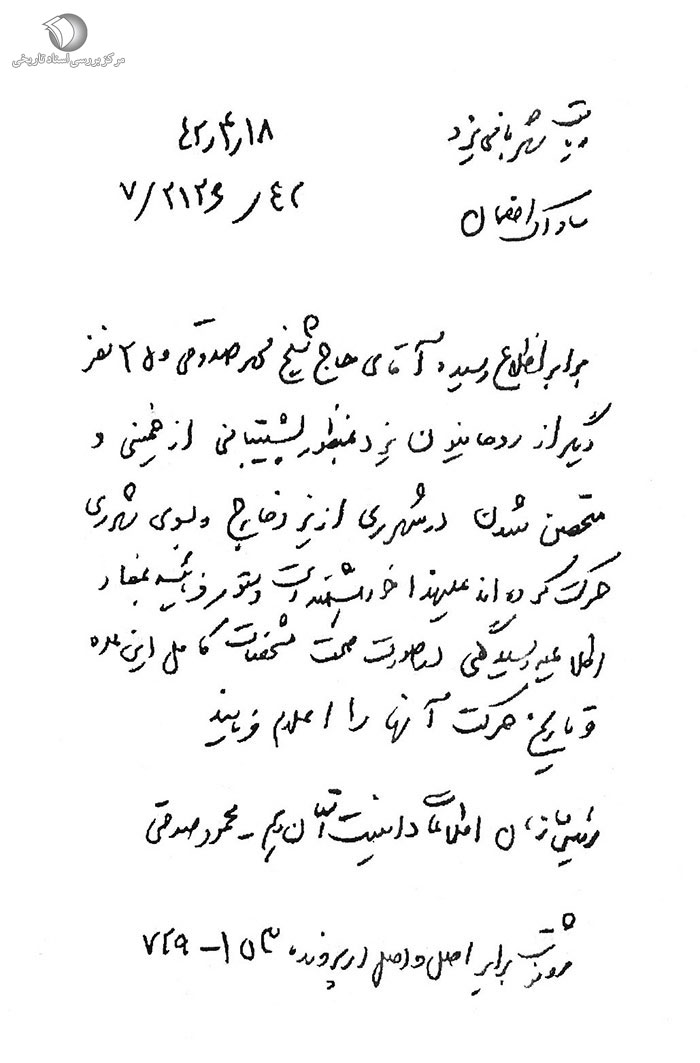 مرکز بررسی اسناد تاریخی
ریاست شهربانی یزد
۴۲/۴/۱۸
ساواک اصفهان
۷/۲۱۲۶/۴۲
برابر اطلاع رسیده آقای حاج شیخ محمد صدوقی و ۲۵ نفر
دیگر از روحانیون یزد بمنظور پشتیبانی از خمینی و
متحصن شدن در شهر ری از یزد خارج و بسوی شهر ری
حرکت کرده اند علیهذا خواهشمند است دستور فرمائید بمفاد
اطلاعیه رسیدگی در صورت صحت مشخصات کامل این عده
و تاریخ حرکت آنها را اعلام فرمایند
رئیس سازمان اطلاعات و امنیت استان دهم - محمود صدقی
رونوشت برابر اصل و اصل در پرونده ۱۵۳-۷۲۹